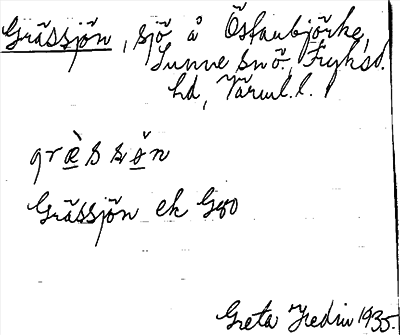 Grässjön, sjö å Östanbjörke,
Sunne snö., Fryksd.
hd, Värml.l.
græ̀ssǒn
Grässjön ek Ggo
Greta Hedin 1935.